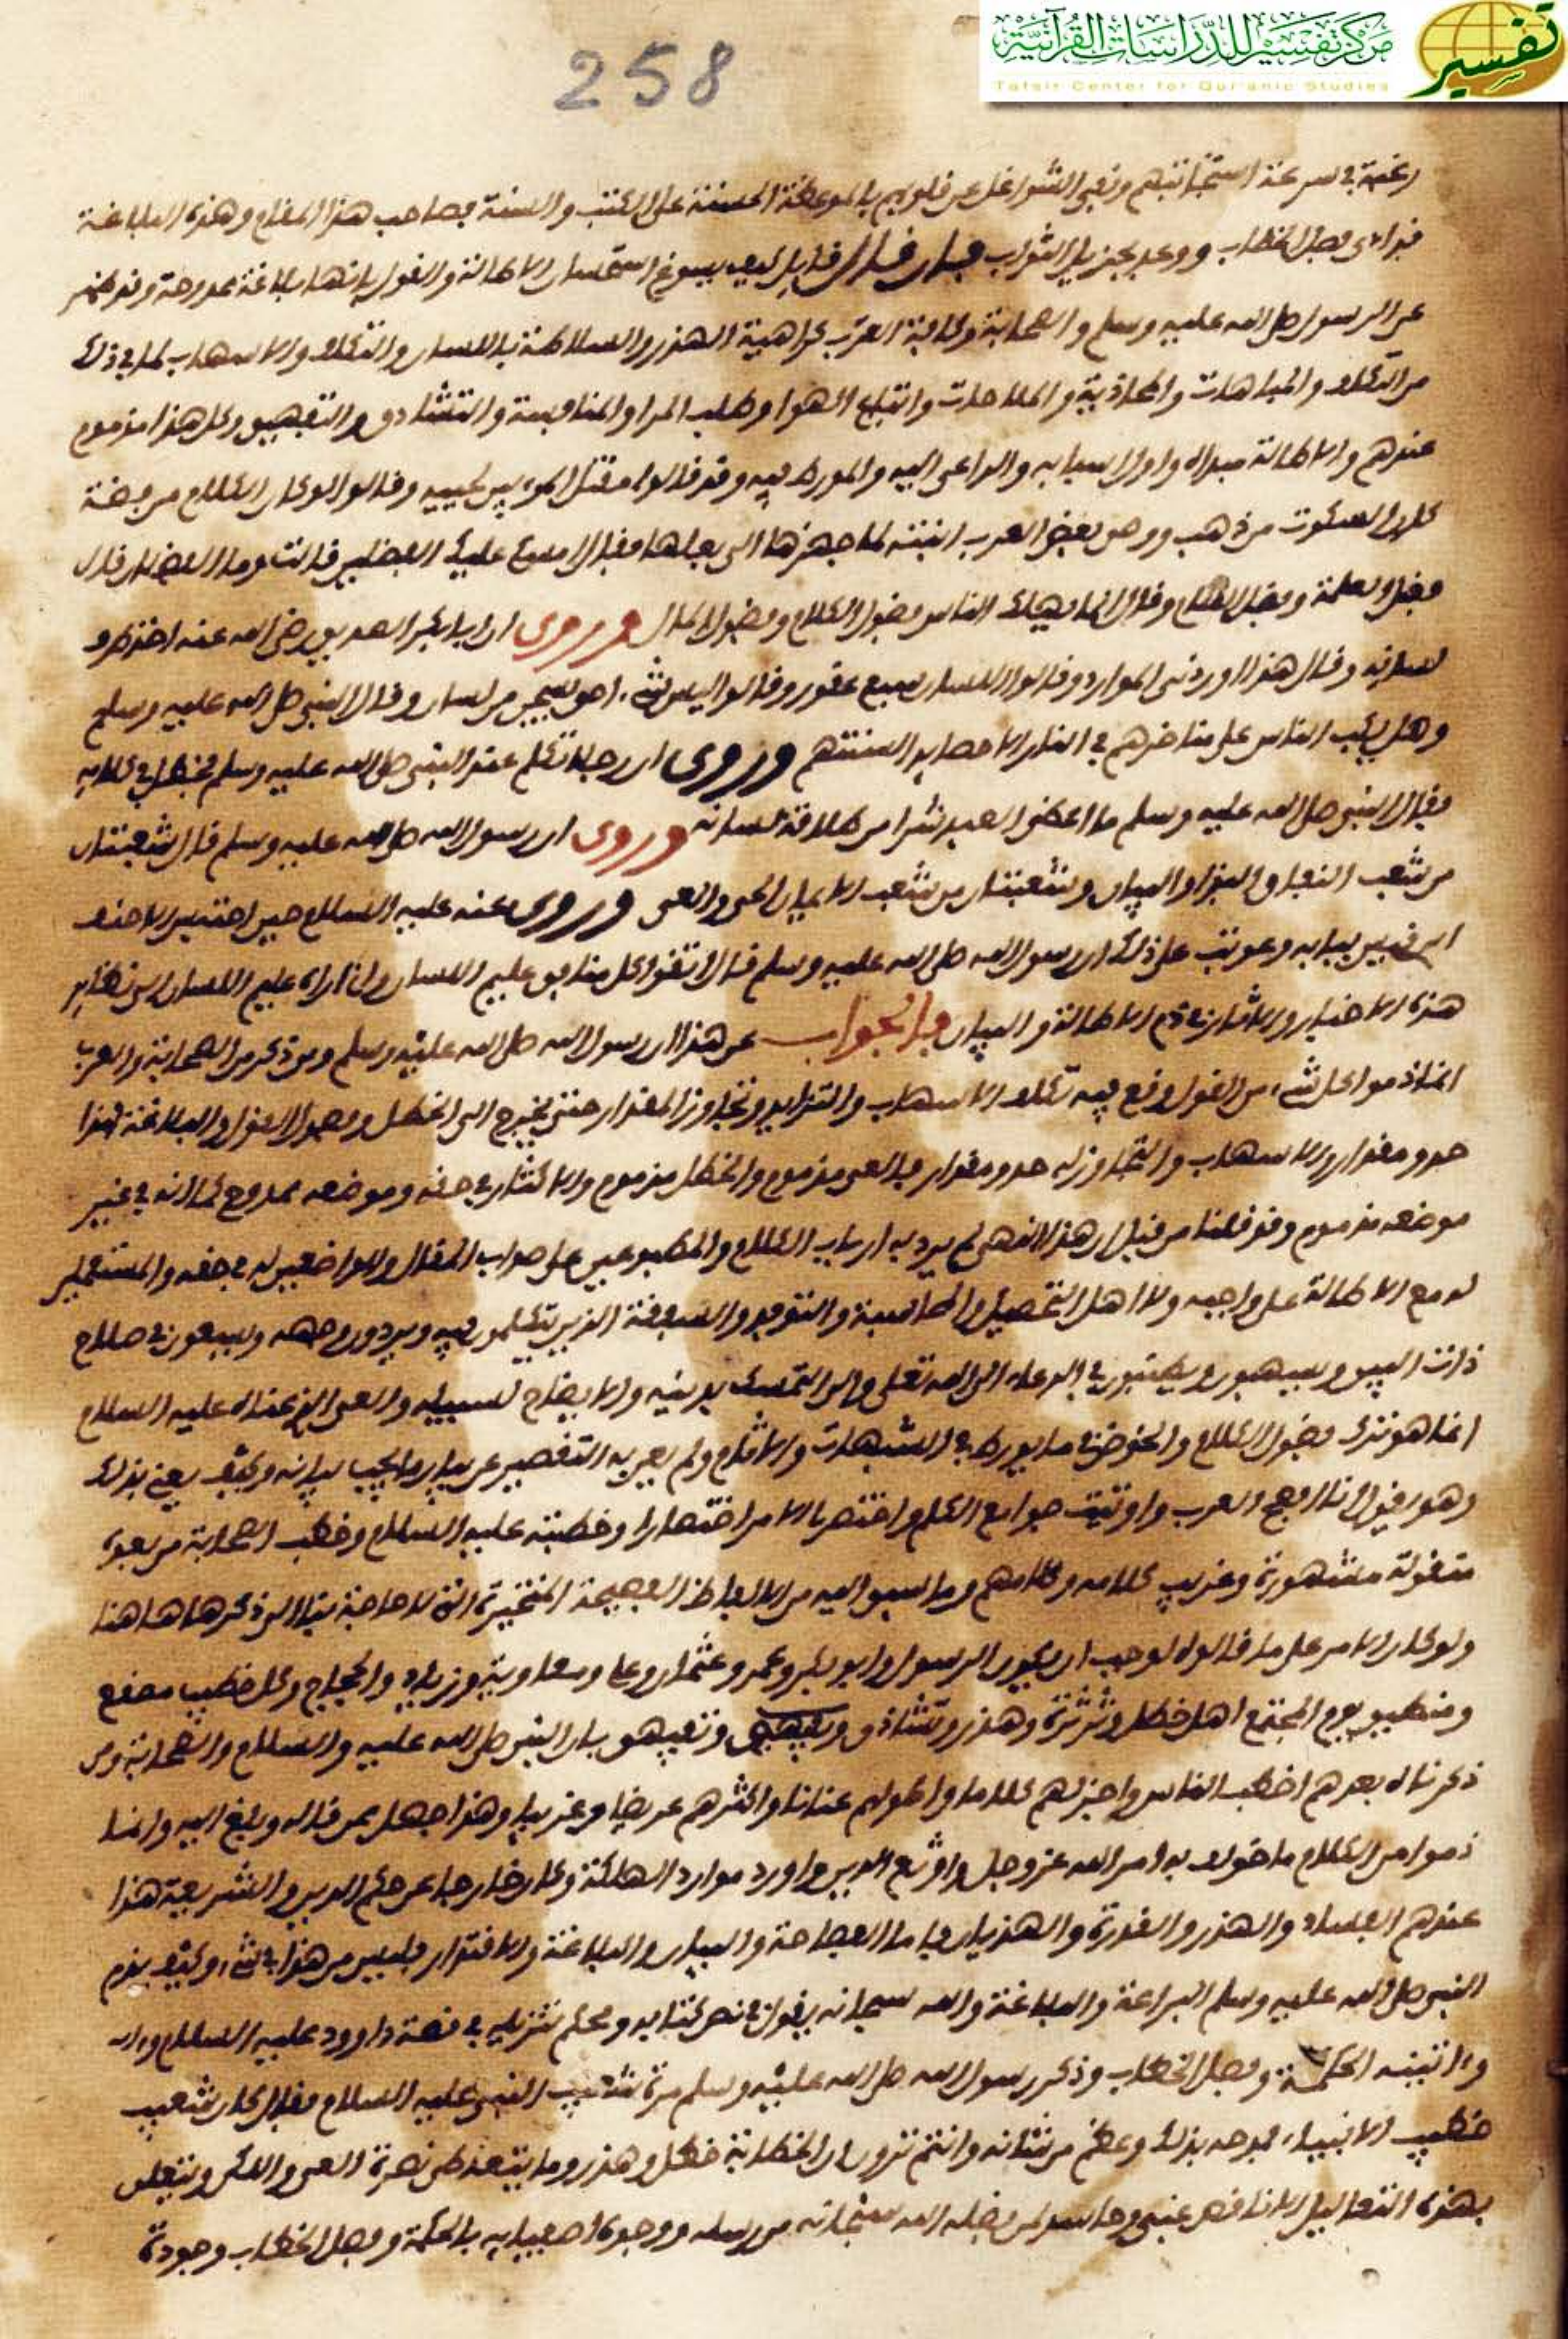 مركز تفسير للدراسات القرآنية
Tafsir Center for Qur'anic Studies
تفسير
258
رغبة في سرعة استجابتهم ونفي الشواغل عن قلوبهم بالموعظة الحسنة على الكتب والسنة فصاحب هذا المقام وهذه البلاغة
قد اوتى فصل الخطاب ووعد بجزيل الثواب فان قال قايل كيف يسوغ استحسان الاطالة والقول بانها بلاغة ممدوحة وقد ظهر
عن الرسول صلى الله عليه وسلم والصحابة وكافة العرب كراهية الهذر والسلاطة باللسان والتكلف والاسهاب لما في ذلك
من التكلف والمباهات والمكاذبة والملاحات واتباع الهوا وطلب المرا والمنافسة والتشادق والتفيهق وكل هذا مذموم
عندهم والاطالة مبداه واول اسبابه والداعى اليه والمورط فيه وقد قالوا مقتل المرء بين لحييه وقالوا لو كان الكلام من فضة
لكان السكوت من ذهب ووصى بعض العرب ابنته لما جهزها الى بعلها فقال امسك عليك الفضلين قالت وما الفضلان قال
فضل الغلمة وفضل الكلام وقال انما يهلك الناس فضول الكلام وفضول المال وروى ان ابا بكر الصديق رضى الله عنه اخذ بطرف
لسانه وقال هذا اوردنى الموارد وقالوا اللسان سبع عقور وقالوا ليس شىء احق بسجن من لسان وقال النبى صلى الله عليه وسلم
وهل يكب الناس على مناخرهم في النار الا حصايد السنتهم وروى ان رجلا تكلم عند النبى صلى الله عليه وسلم فخطل في كلامه
فقال النبى صلى الله عليه وسلم ما اعطى العبد شرا من طلاقة لسانه وروى ان رسول الله صلى الله عليه وسلم قال شعبتان
من شعب النفاق البذا والبيان وشعبتان من شعب الايمان الحيا والعى وروى عنه عليه السلام حين احتبس الاحنف
ابن قيس ببابه وعوتب على ذلك ان رسول الله صلى الله عليه وسلم قال اتقوا كل منافق عليم اللسان وانا اراه عليم اللسان من نظاير
هذه الاخبار والاثار في ذم الاطالة والبيان فالجواب عن هذا ان رسول الله صلى الله عليه وسلم ومن ذكر من الصحابة والعرب
انما ذموا كل شىء من القول وقع فيه تكلف الاسهاب والتزايد وتجاوز المقدار حتى يخرج الى الخطل وفضول القول والبلاغة لهذا
حد ومقدار والاسهاب والتجاوز له حد ومقدار فالعى مذموم والخطل مذموم والاكثار في حقه وموضعه ممدوح كما انه في غير
موضعه مذموم وقد قلنا من قبل ان هذا النهى لم يرد به ارباب الكلام والمطبوعين على صواب المقال والواضعين له في حقه والمستعملين
له مع الاطالة على واجبه ولا اهل التحصيل والمحاسبة والتوقيف والسوقة الذين يتكلمون فيه ويريدون وجهه ويسعون في صلاح
ذات البين ويسهبون ويطنبون في الدعاء الى الله تعلى والى التمسك بدينه والايضاح لسبيله والعى الذى عناه عليه السلام
انما هو ترك فضول الكلام والخوض فيما يورط في الشبهات والاثام ولم يعن به التقصير عن بيان ما يجب بيانه وكيف يعنى بذلك
وهو يقول انا افصح العرب واوتيت جوامع الكلم واختصر لى الامر اختصارا وخطبته عليه السلام وخطب الصحابة من بعده
منقولة مشهورة وغريب كلامه وكلامهم وما سبقوا اليه من الالفاظ الفصيحة المتخيرة التى لا حاجة بنا الى ذكرها هاهنا
ولو كان الامر على ما قالوه لوجب ان يكون الرسول وابو بكر وعمر وعثمان وعلى ومعاوية وزياد والحجاج وكل خطيب مصقع
ومنطيق يوم المجتمع اهل خطل وثرثرة وهذر وتشادق وتفيهق لان النبى صلى الله عليه والسلام والصحابة ومن
ذكرناه بعدهم اخطب الناس واجزلهم كلاما واطولهم عنانا واكثرهم عريضا وغريبا وهذا جهل ممن قاله وبلغ اليه وانما
ذموا من الكلام ما خولف به امر الله عز وجل واوتغ الدين واورد موارد الهلكة وكان خارجا عن حكم الدين والشريعة هذا
عندهم الفساد والهذر والهذيان فاما الفصاحة والبيان والبلاغة والاقتدار فليس من هذا في شىء وكيف يذم
النبى صلى الله عليه وسلم البراعة والبلاغة والله سبحانه يقول في نص كتابه ومحكم تنزيله في قصة داوود عليه السلام
واتينه الحكمة وفصل الخطاب وذكر رسول الله صلى الله عليه وسلم مرة شعيب النبى عليه السلام فقال كان شعيب
خطيب الانبياء فمدحه بذلك وعظم من شانه وانتم ترون ان الخطابة خطل وهذر وما يتعاطى نصرة العى واللكن ويتعلق
بهذه التعاليل الا ناقص غبى وحاسد لمن فضله الله سبحانه من رسله ووجوه اصفيايه بالحكمة وفصل الخطاب وجودة